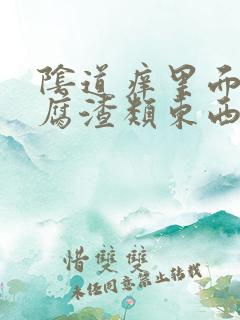 陰道痒里而
腐渣類東西
惜雙雙
未经同意禁止转载